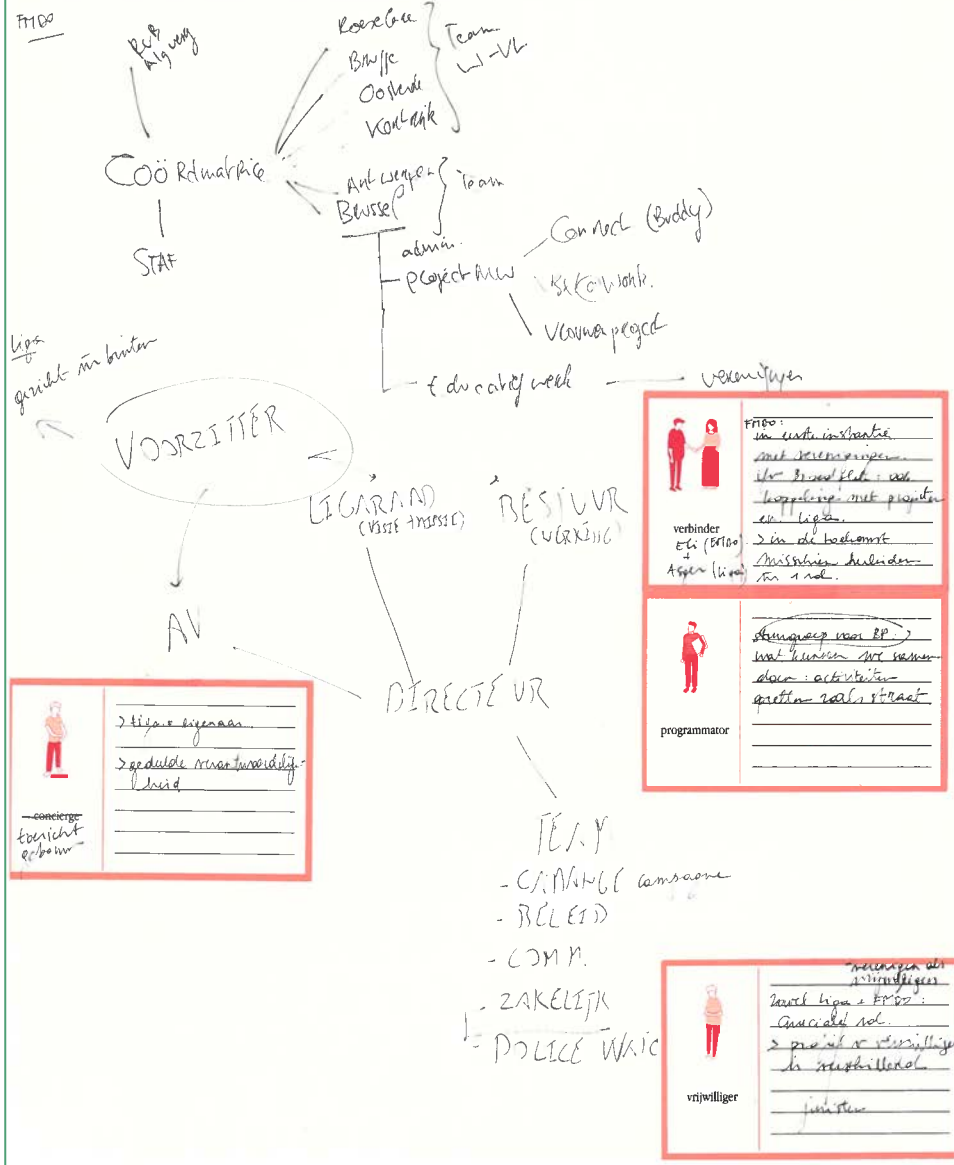 FMDO
RvB
Alg verg
Roeselare
Brugge
Oostende
Kortrijk
Team
W-VL
Coördinatrice
STAF
Antwerpen
Brussel
Team
admin.
project MW
Connect (Buddy)
Vrouwenproject
Educatief werk
verenigingen
Liga
gezicht nr buiten
VOORZITTER
LIGARAAD
(VISIE + MISSIE)
BESTUUR
(WERKING)
AV
DIRECTEUR
TEAM
- CHANGE campagne
- BELEID
- COMM.
- ZAKELIJK
- POLICE WATC
verbinder
Eli (FMDO)
+
(Liga)
FMDO:
in eerste instantie
met verenigingen.
ook
koppeling met projecten
en liga.
> in de toekomst
misschien herleiden
tr 1 rol.
programmator
stuurgroep voor BP: >
wat kunnen we samen
doen: activiteiten
opzetten zoals straat
concierge
toezicht
gebouw
> liga = eigenaar
> gedeelde verantwoordelijk-
heid
vrijwilliger
verenigingen als
vrijwilligers
zowel liga + FMDO:
cruciale rol.
> profiel v vrijwilliger
is verschillend
juristen